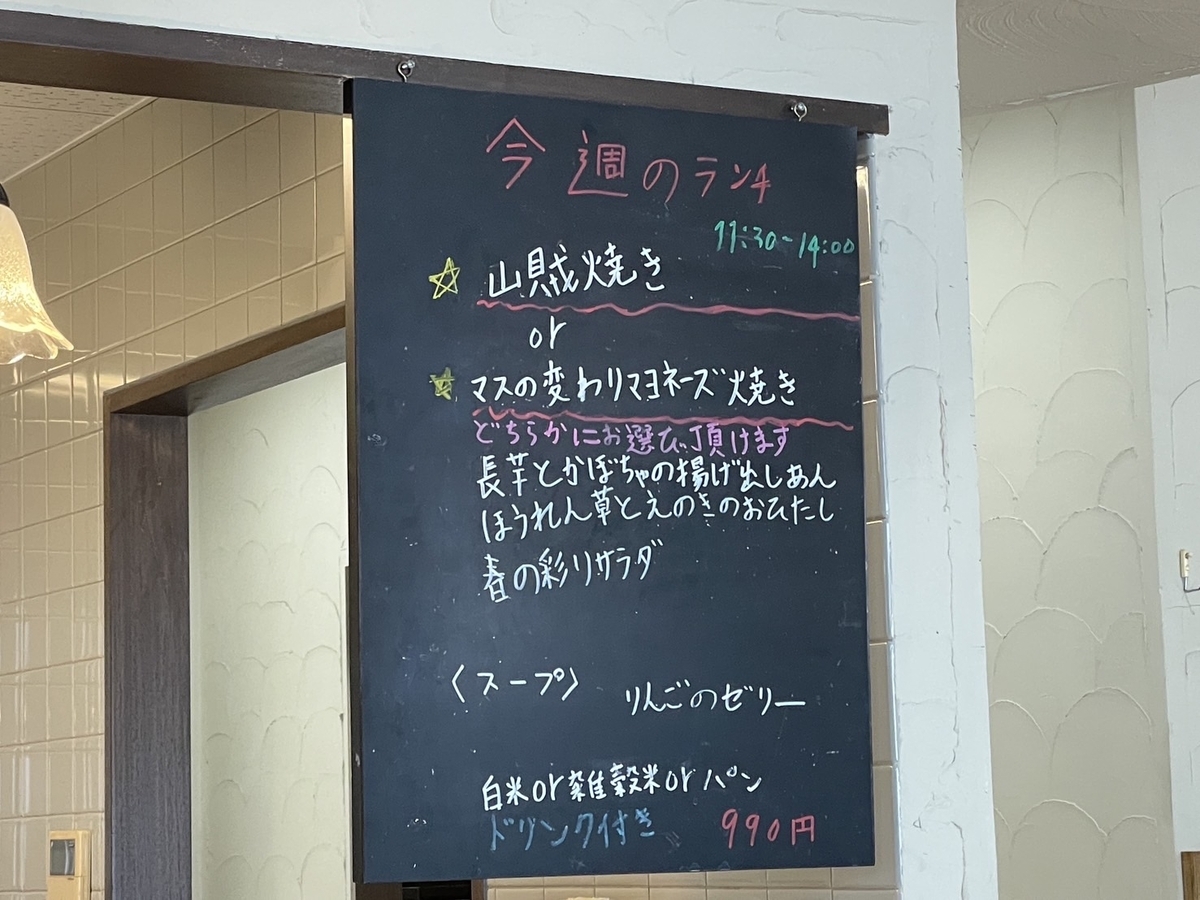 今週のランチ
11:30~14:00
☆山賊焼き
or
☆マスの変わりマヨネーズ焼き
どちらかにお選び頂けます
長芋とかぼちゃの揚げ出しあん
ほうれん草とえのきのおひたし
春の彩りサラダ
〈スープ〉
りんごのゼリー
白米or雑穀米orパン
ドリンク付き 990円